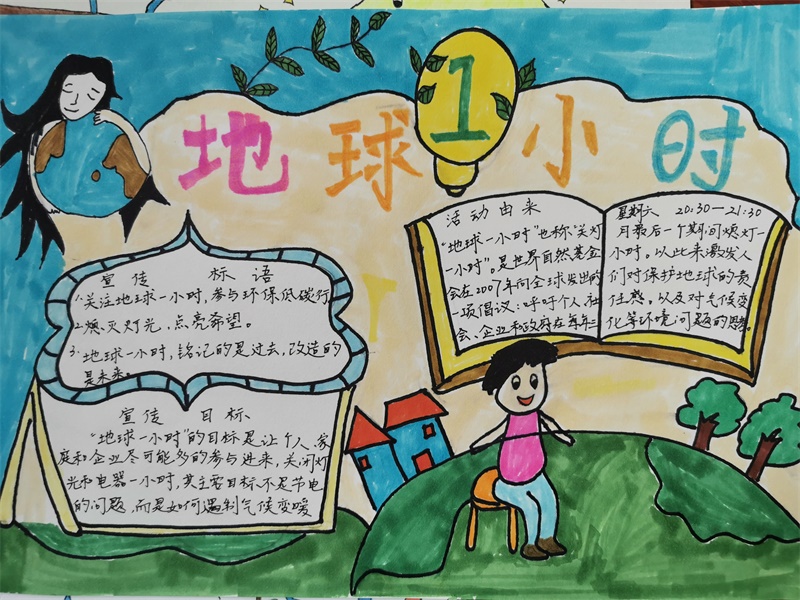 地球1小时
宣传 标语
1.关注地球一小时,参与环保低碳行
2.熄灭灯光,点亮希望。
3.地球一小时,铭记的是过去,改造的
是未来。
宣传 目标
“地球一小时”的目标是让个人、家
庭和企业尽可能多的参与进来,关闭灯
光和电器一小时,其主要目标不是节电
的问题,而是如何遏制气候变暖
活动由来
“地球一小时”也称“关灯
一小时”。是世界自然基金
会在2007年向全球发出的
一项倡议:呼吁个人、社
会、企业和政府在每年三
星期六 20:30—21:30
月最后一个期间熄灯一
小时。以此来激发人
们对保护地球的责
任感,以及对气候变
化等环境问题的思考。